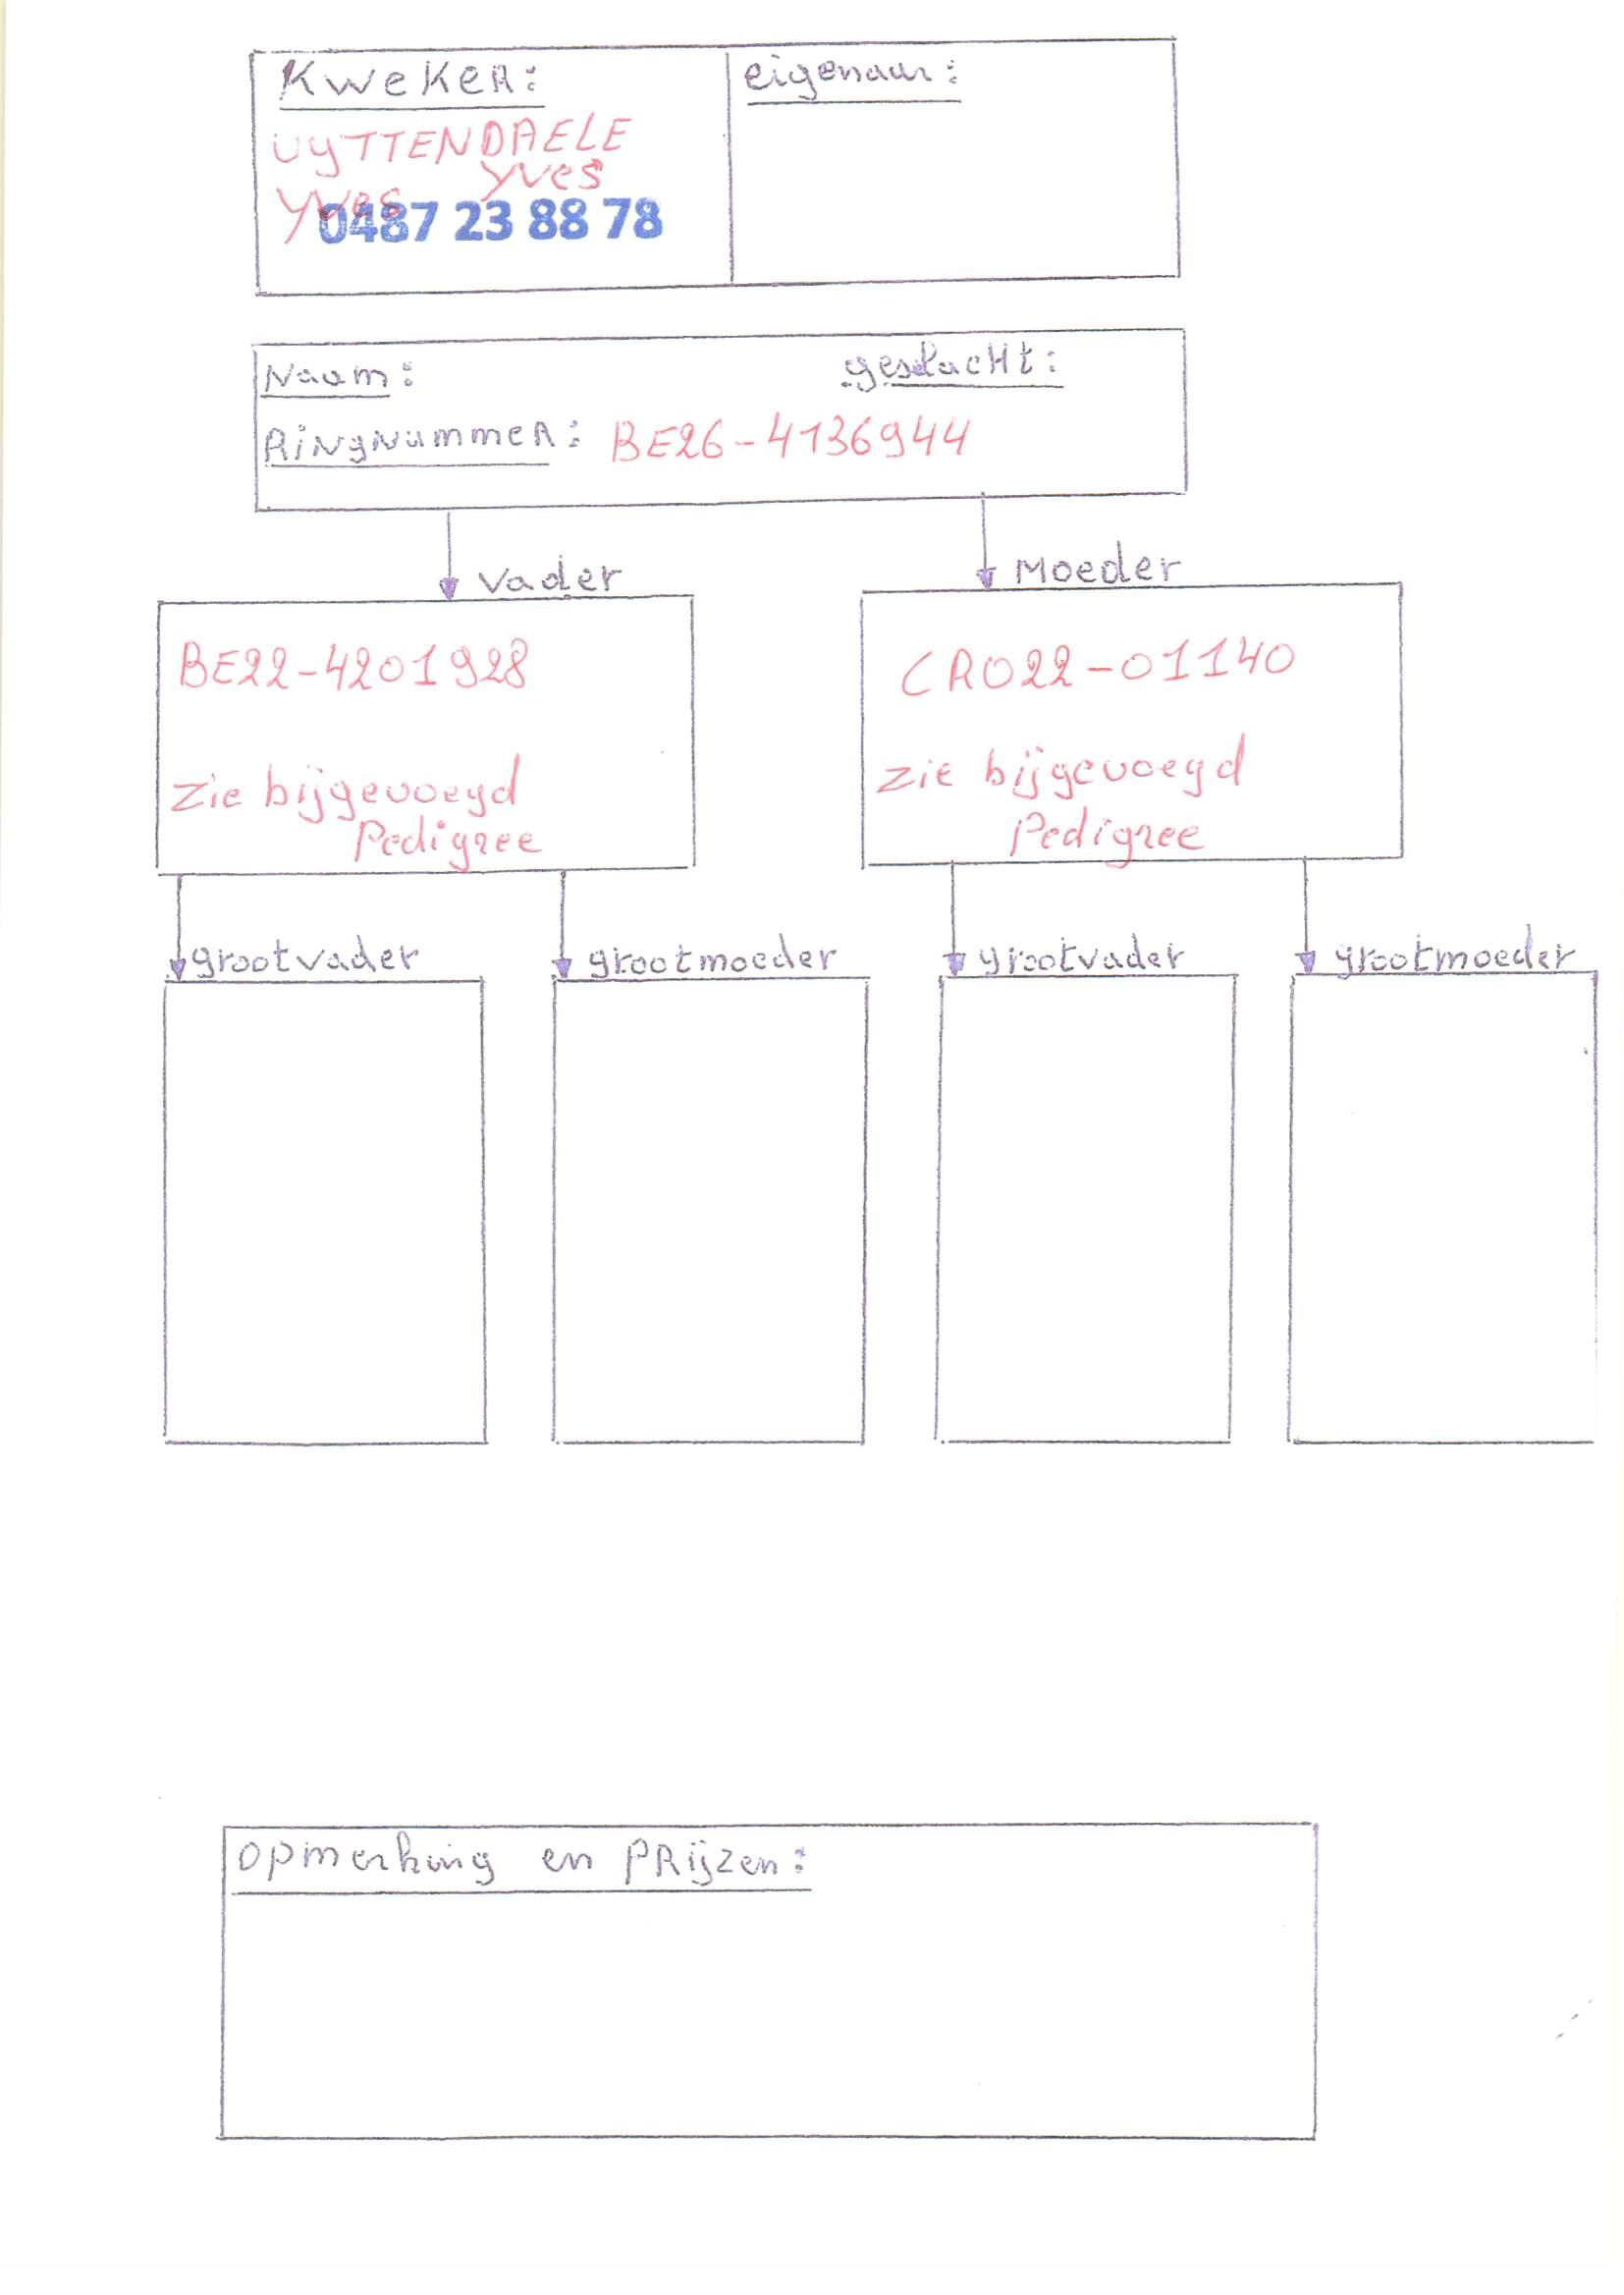 Kweker:
eigenaar:
UYTTENDAELE
Yves
Yves
0487 23 88 78
Naam:
geslacht:
Ringnummer: BE26-4136944
Vader
Moeder
BE22-4201928
CRO22-01140
Zie bijgevoegd
Pedigree
Zie bijgevoegd
Pedigree
grootvader
grootmoeder
grootvader
grootmoeder
opmerking en PRijzen: